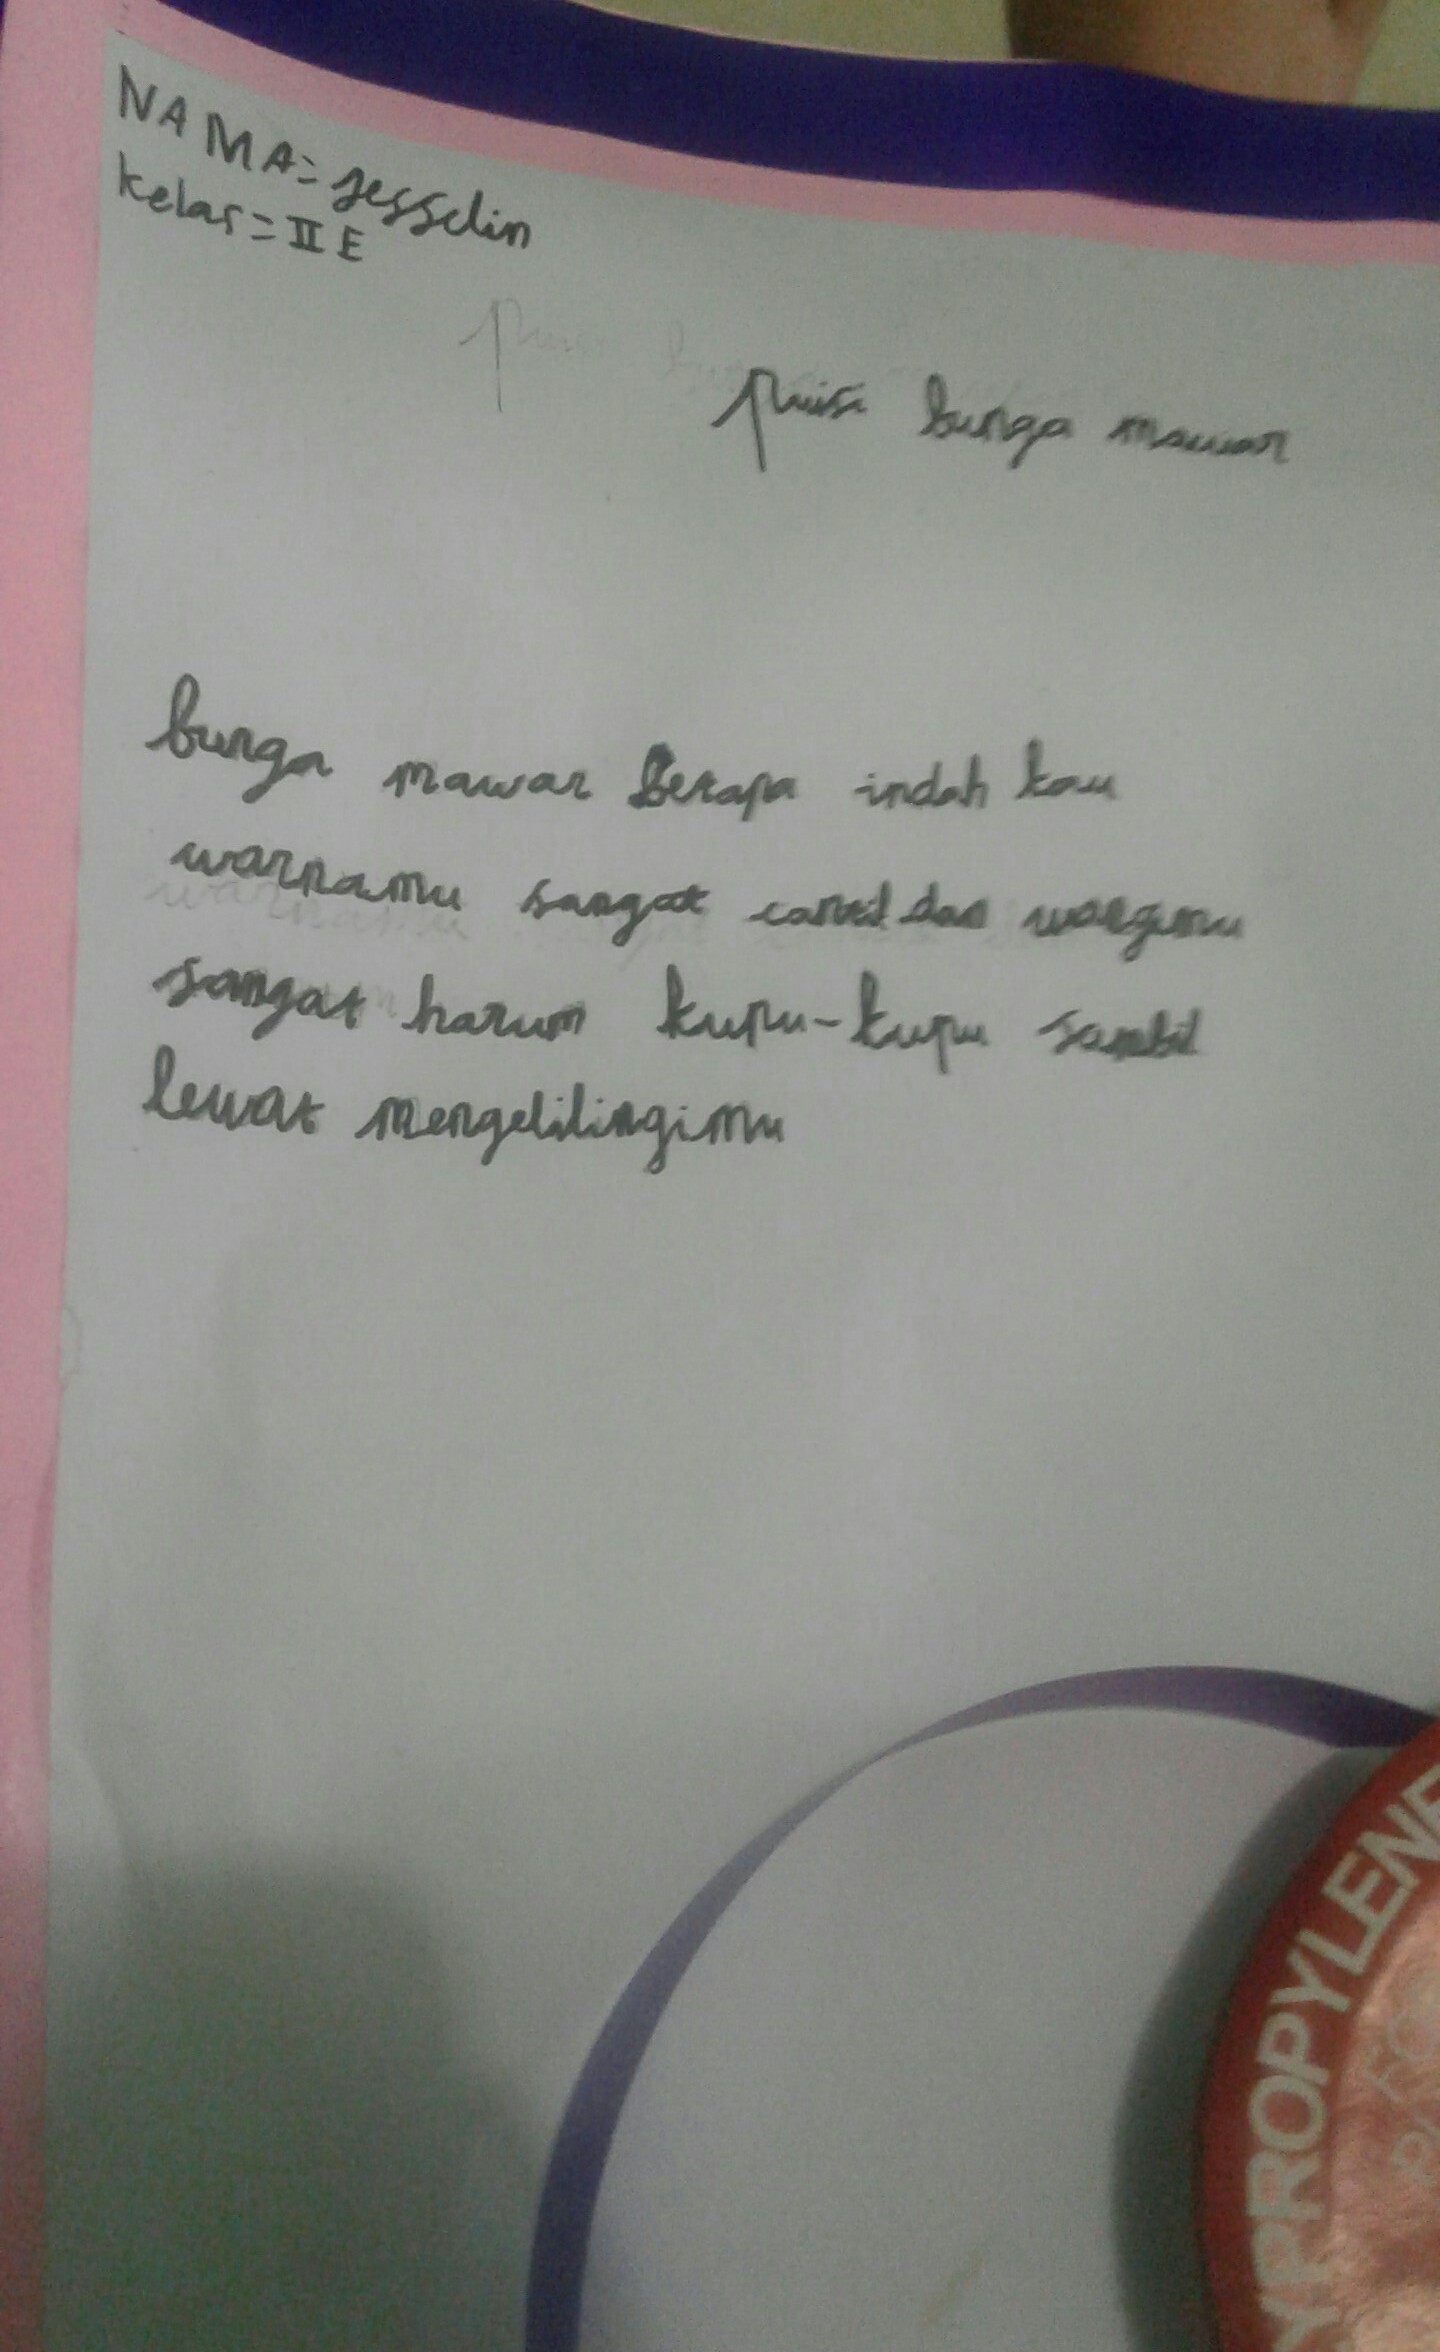 NAMA= jesselin
kelas= II E
puisi bunga mawar
bunga mawar Betapa indah kau
warnamu sangat cantik dan wangimu
sangat harum kupu-kupu sambil
lewat mengelilingimu
YPROPYLENE
FO